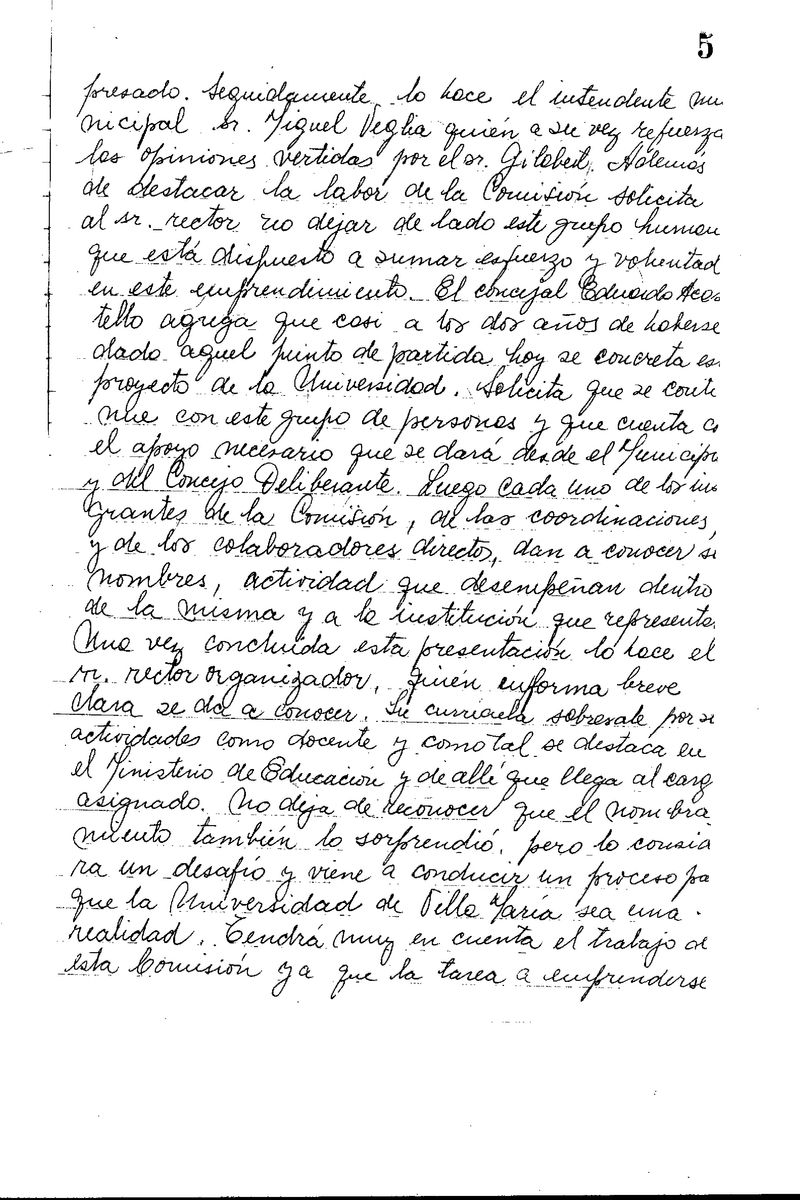 5
presado. Seguidamente, lo hace el intendente mu
nicipal sr. Miguel Veglia quién a su vez refuerza
las opiniones vertidas por el sr. Gilabert. Además
de destacar la labor de la Comisión solicita
al sr. rector no dejar de lado este grupo human
que está dispuesto a sumar esfuerzo y voluntad
en este emprendimiento. El concejal Eduardo Acas
tello agrega que casi a los dos años de haberse
dado aquel punto de partida hoy se concreta es
proyecto de la Universidad. Solicita que se conti
nue con este grupo de personas y que cuenta c
el apoyo necesario que se dará desde el Municipi
y del Concejo Deliberante. Luego cada uno de los in
grantes de la Comisión, de las coordinaciones,
y de los colaboradores directos, dan a conocer s
nombres, actividad que desempeñan dentro
de la misma y a la institución que representa
Una vez concluída esta presentación lo hace el
sr. rector organizador, quién en forma breve
clara se da a conocer. Su curricula sobresale por s
actividades como docente y como tal se destaca en
el Ministerio de Educación y de allí que llega al carg
asignado. No deja de reconocer que el nombra
miento también lo sorprendió, pero lo consid
ra un desafío y viene a conducir un proceso pa
que la Universidad de Villa María sea una
realidad. Tendrá muy en cuenta el trabajo de
esta Comisión ya que la tarea a emprenderse